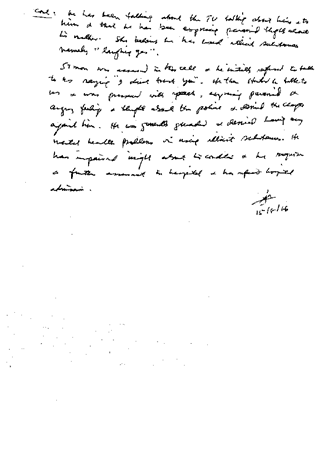 Cont: He has been talking about the TV talking about him &
him & that he has been expressing paranoid thoughts about
his mother. She believes he has used illicit substances
namely "laughing gas".
S was assessed in the cell & he initially refused to talk
to us saying "I don't trust you". He then started to talk to
us & was pressured with speech, expressing paranoid &
angry feelings & thoughts about the police & denied the charges
against him. He was & denied having any
mental health problems or using illicit substances. He
has impaired insight about his condition & he requires
a further assessment in hospital & has refused hospital
admission.
15/ /16